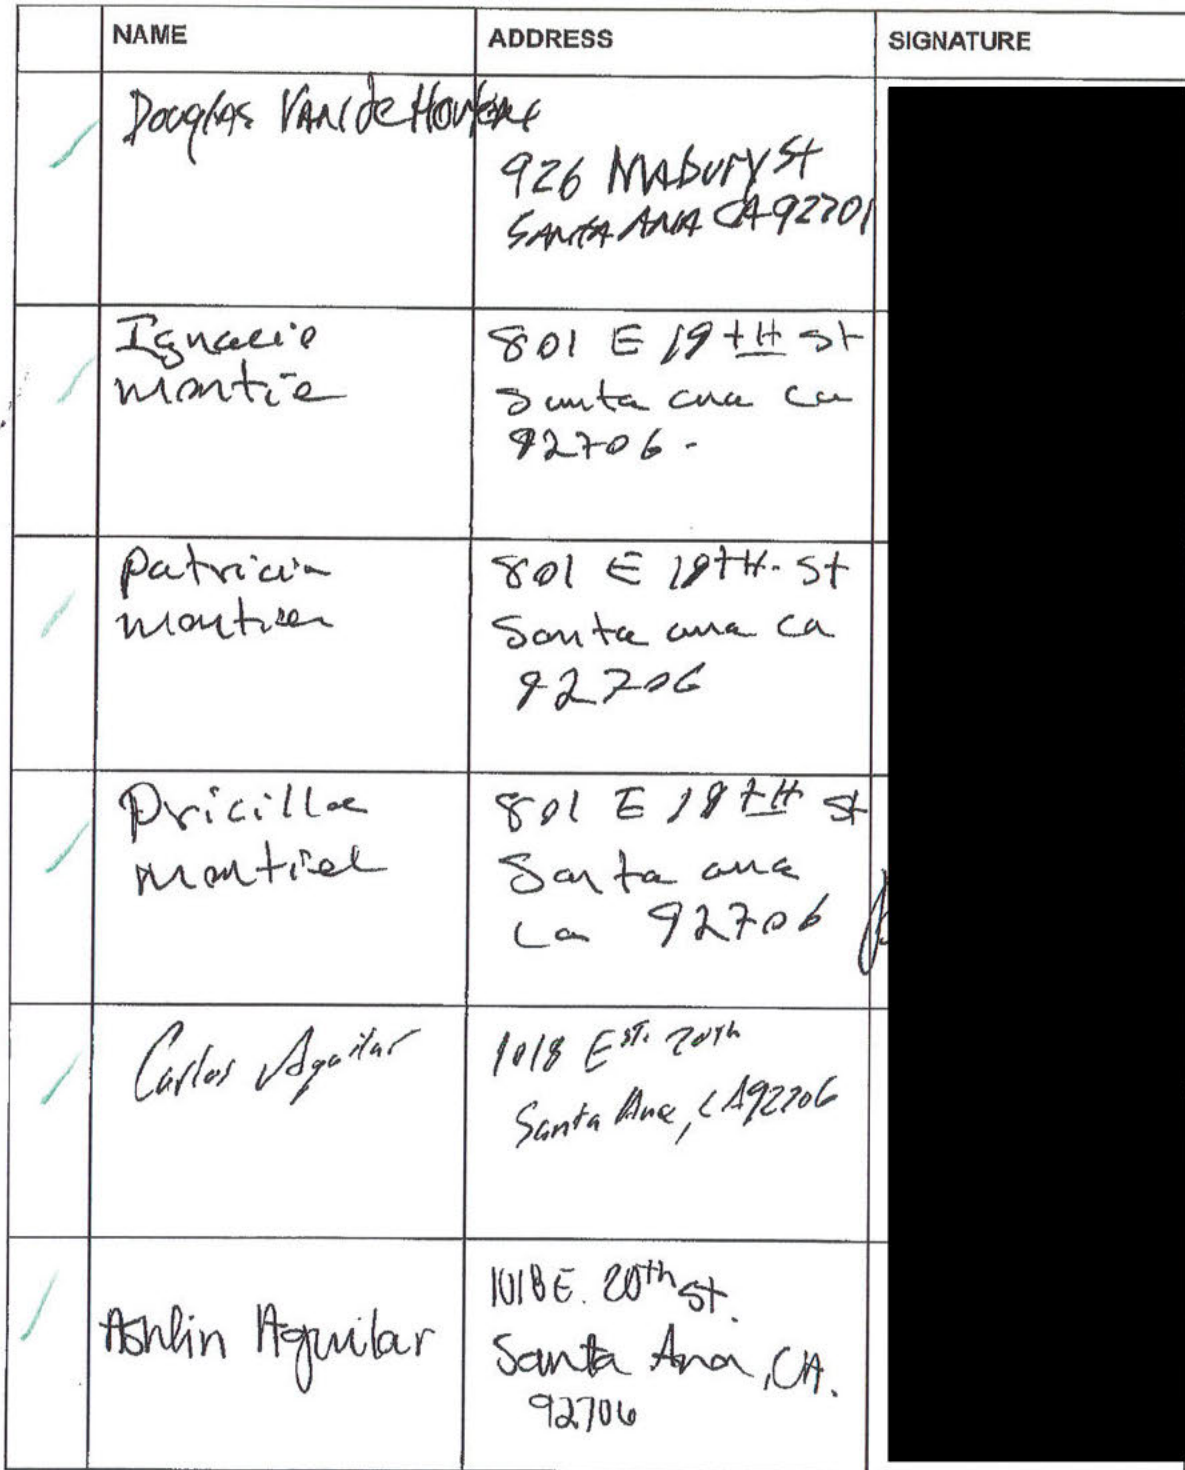 NAME ADDRESS SIGNATURE
Douglas
926 Mabury St
Santa Ana CA 92701
Ignacio
801 E 19th St
Santa ana ca
92706 -
Patricia
801 E 19th St
Santa ana ca
92706
Pricilla
montiel
801 E 19th St
Santa ana
ca 92706
Carlos Aguilar
1018 E St. 20th
Santa Ana, CA 92706
Ashlin Aguilar
1018 E. 20th St.
Santa Ana, CA.
92706